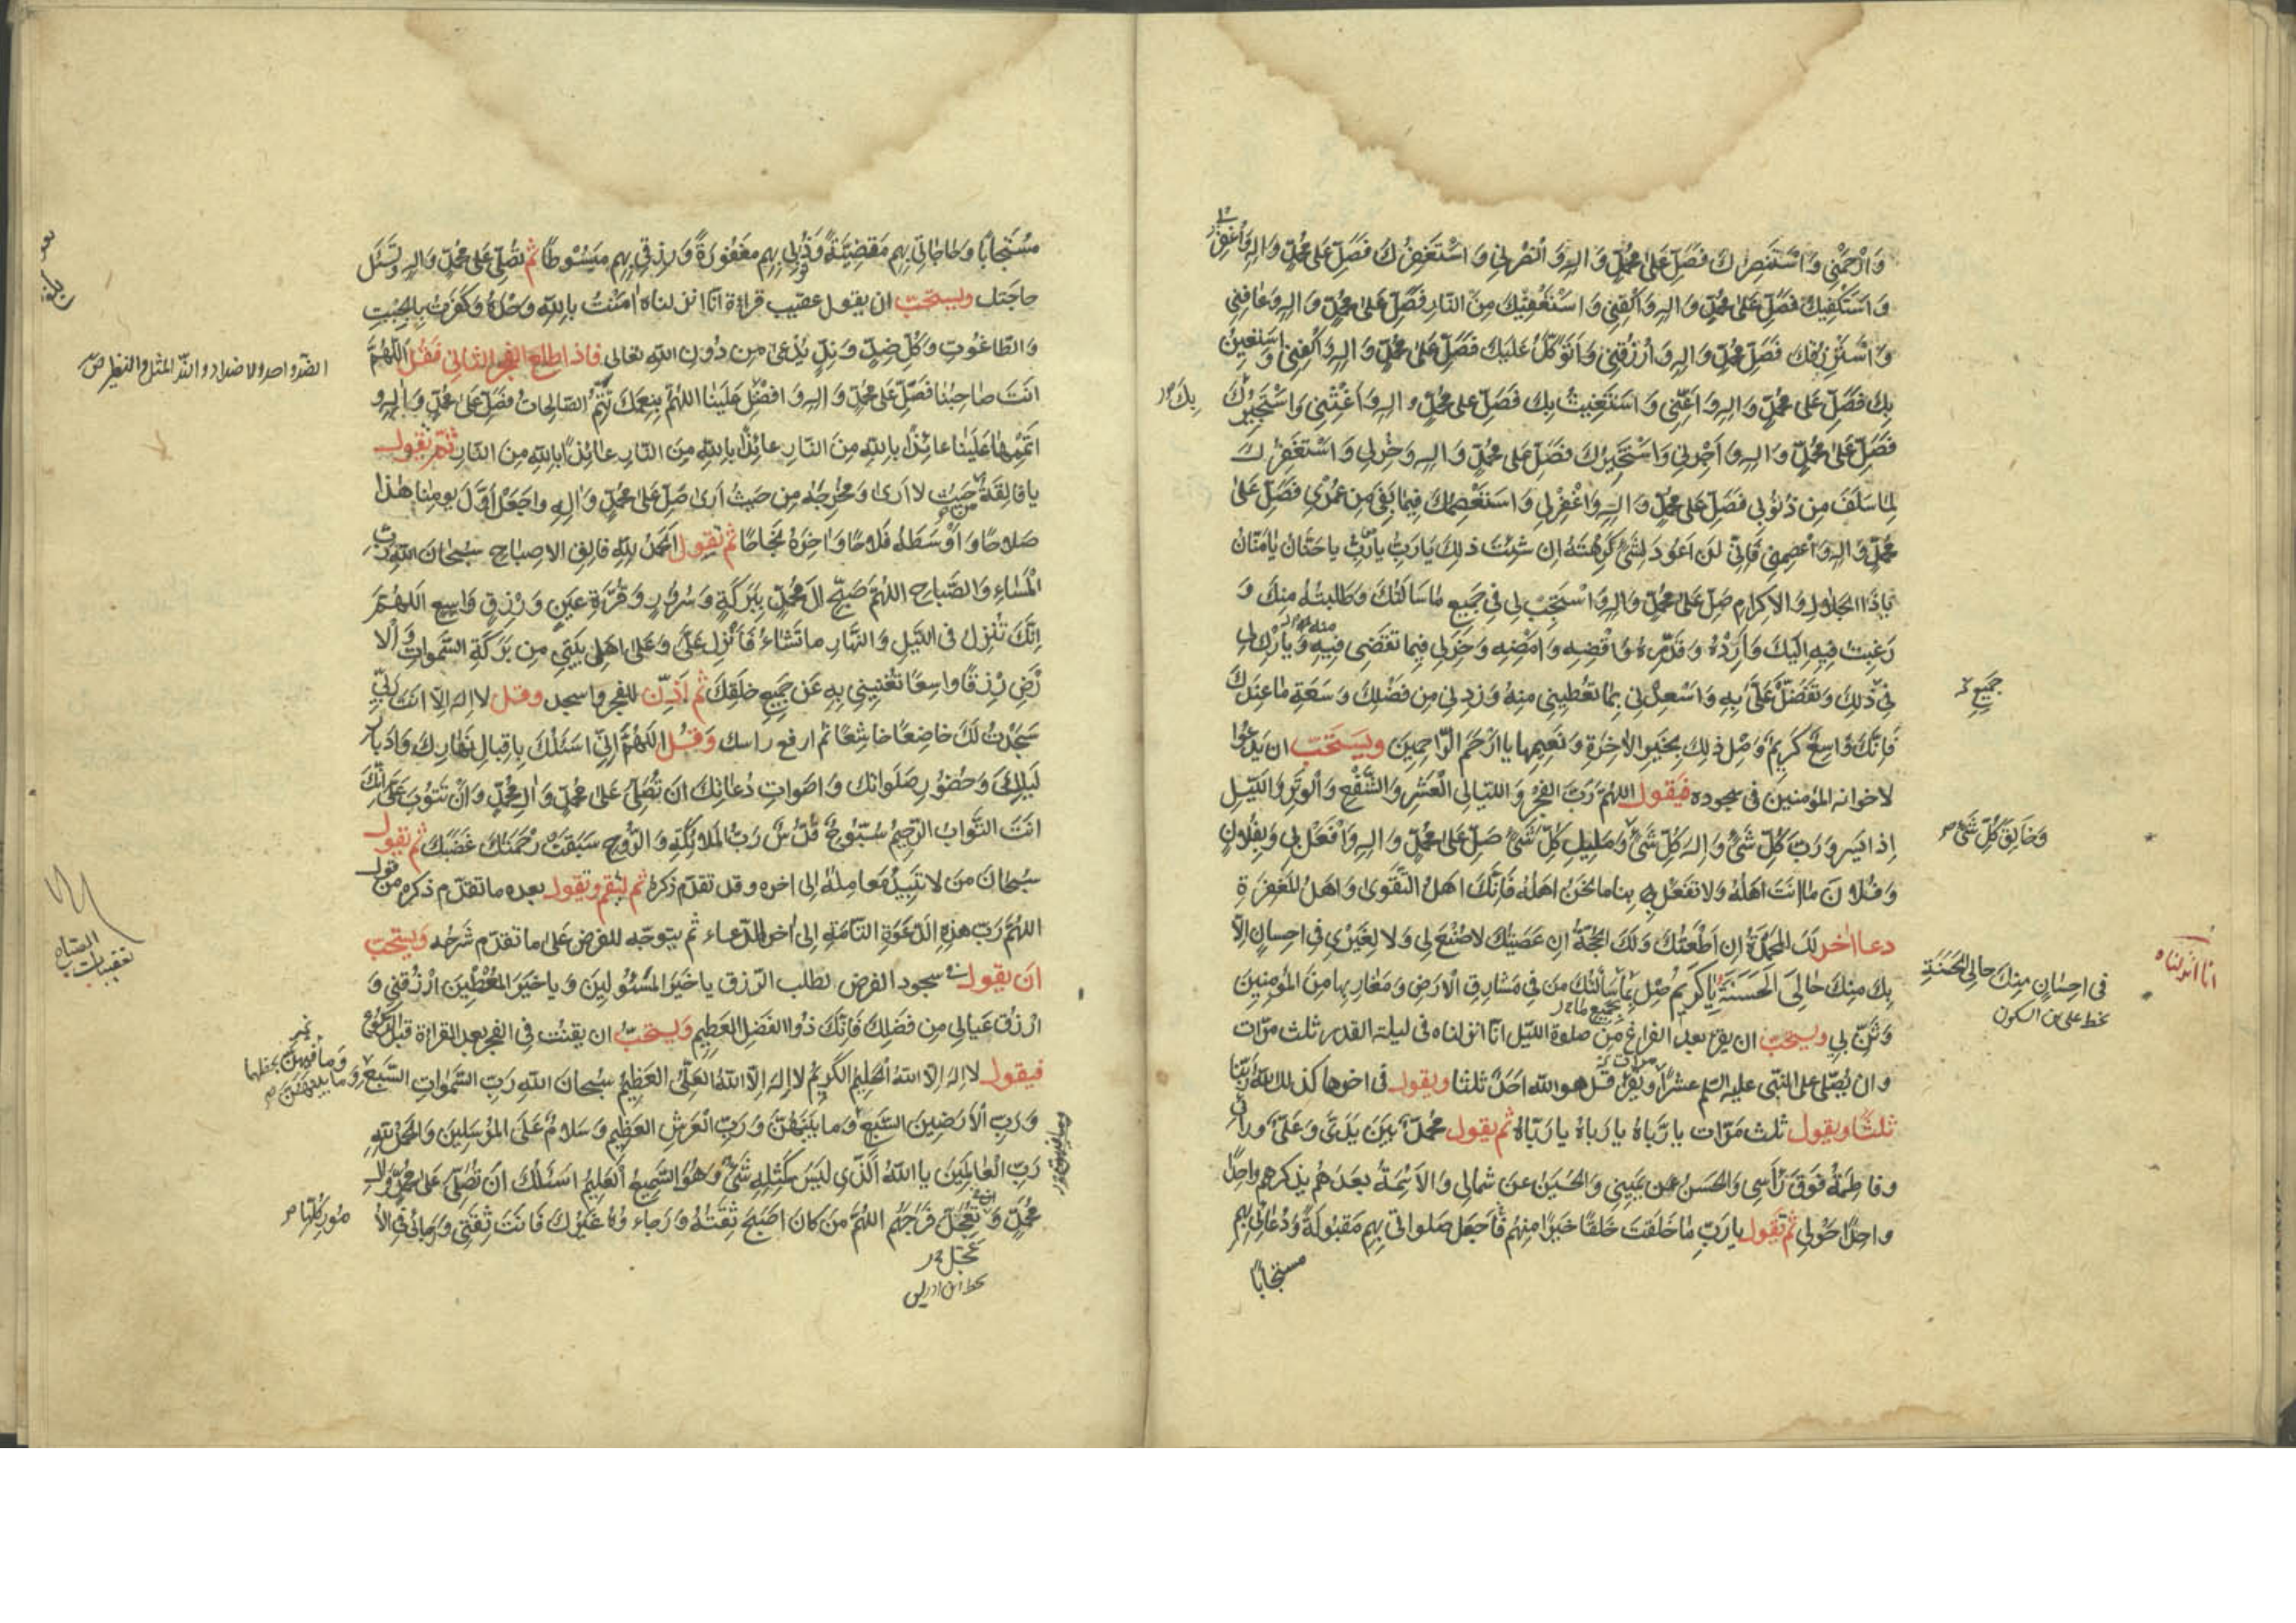 وَارْحَمْنِي وَاَسْتَنْصِرُكَ فَصَلِّ عَلىٰ مُحَمَّدٍ وَالِهِ وَانْصُرْنِي وَاَسْتَغْفِرُكَ فَصَلِّ عَلىٰ مُحَمَّدٍ وَالِهِ وَاغْفِرْ لي
وَاَسْتَكْفِيكَ فَصَلِّ عَلىٰ مُحَمَّدٍ وَالِهِ وَاكْفِنِي وَاَسْتَعْفِيكَ مِنَ النّارِ فَصَلِّ عَلىٰ مُحَمَّدٍ وَالِهِ وَعَافِنِي
وَاَسْتَرْزِقُكَ فَصَلِّ عَلىٰ مُحَمَّدٍ وَالِهِ وَارْزُقْنِي وَاَتَوَكَّلُ عَلَيْكَ فَصَلِّ عَلىٰ مُحَمَّدٍ وَالِهِ وَاكْفِنِي وَاَسْتَعِينُ
بِكَ فَصَلِّ عَلىٰ مُحَمَّدٍ وَالِهِ وَاَعِنِّي وَاَسْتَغِيثُ بِكَ فَصَلِّ عَلىٰ مُحَمَّدٍ وَالِهِ وَاَغِثْنِي وَاَسْتَجِيرُكَ
بِكَ
فَصَلِّ عَلىٰ مُحَمَّدٍ وَالِهِ وَاَجِرْنِي وَاَسْتَخِيرُكَ فَصَلِّ عَلىٰ مُحَمَّدٍ وَالِهِ وَخِرْ لِي وَاَسْتَغْفِرُكَ
لِمَا سَلَفَ مِنْ ذُنُوبِي فَصَلِّ عَلىٰ مُحَمَّدٍ وَالِهِ وَاغْفِرْ لِي وَاَسْتَعْصِمُكَ فِيمَا بَقِيَ مِنْ عُمْرِي فَصَلِّ عَلىٰ
مُحَمَّدٍ وَالِهِ وَاعْصِمْنِي فَاِنِّي لَنْ اَعُودَ لِشَيْءٍ كَرِهْتَهُ اِنْ شِئْتَ ذٰلِكَ يَارَبِّ يَارَبِّ يا حَنّانُ يا مَنّانُ
يَا ذَا الْجَلالِ وَالاِكْرامِ صَلِّ عَلىٰ مُحَمَّدٍ وَالِهِ وَاسْتَجِبْ لِي فِي جَمِيعِ مَا سَاَلْتُكَ وَطَلَبْتُهُ مِنْكَ وَ
رَغِبْتُ فِيهِ اِلَيْكَ وَاَرِدْهُ وَقَدِّرْهُ وَاقْضِهِ وَامْضِهِ وَخِرْ لِي فِيمَا تَقْضِي فِيهِ وَبَارِكْ لي
فِي ذٰلِكَ وَتَفَضَّلْ عَلَيَّ بِهِ وَاَسْعِدْنِي بِمَا تُعْطِينِي مِنْهُ وَزِدْنِي مِنْ فَضْلِكَ وَسَعَةِ مَا عِنْدَكَ
جَمِيعِ
فَاِنَّكَ وَاسِعٌ كَرِيمٌ وَصِلْ ذٰلِكَ بِخَيْرِ الاٰخِرَةِ وَنَعِيمِهَا يَا اَرْحَمَ الرّاحِمِينَ ويستحبّ ان يدعوا
لاخوانه المؤمنين في سجوده فيقول اللّهُمَّ رَبَّ الْفَجْرِ وَاللَّيَالِي الْعَشْرِ وَالشَّفْعِ وَالْوَتْرِ وَاللَّيْلِ
اِذَا يَسْرِ وَرَبَّ كُلِّ شَيْءٍ وَاِلٰهَ كُلِّ شَيْءٍ وَمَلِيكَ كُلِّ شَيْءٍ صَلِّ عَلىٰ مُحَمَّدٍ وَالِهِ وَافْعَلْ بِي وَبِفُلانٍ
وَخَالِقَ كُلِّ شَيْءٍ
وَفُلانٍ مَا اَنْتَ اَهْلُهُ وَلا تَفْعَلْ بِنا مَا نَحْنُ اَهْلُهُ فَاِنَّكَ اَهْلُ التَّقْوىٰ وَاَهْلُ الْمَغْفِرَةِ
دعاء اٰخر لَكَ الْمَحْمَدَةُ اِنْ اَطَعْتُكَ وَلَكَ الْحُجَّةُ اِنْ عَصَيْتُكَ لا صُنْعَ لِي وَلا لِغَيْرِي فِي اِحْسانٍ اِلّا
انا انزلناه
بِكَ مِنْكَ حَالِيَ الْحَسَنَةِ يَا كَرِيمُ صِلْ بِمَا سَاَلْتُكَ مَنْ فِي مَشَارِقِ الْاَرْضِ وَمَغَارِبِهَا مِنَ الْمُؤْمِنِينَ
في احسانٍ مِنكَ حالي الحَسَنَةِ
بخط علي بن السكون
وَثَنِّ بِي ويستحبّ ان يقرأ بعد الفراغ من صلوة اللّيل انّا انزلناه في ليلة القدر ثلث مرّات
وان يصلّي على النبّي عليه السلم عشراً ويقرأ قل هو الله احد ثلثا ويقول في اخرها كذلك الله ربّنا
ثلثًا ويقول ثلث مرّات يا رَبّاهُ يا رَبّاهُ يا رَبّاهُ ثم يقول مُحَمَّدٌ بَيْنَ يَدَيَّ وَعَلِيٌّ ورائي
وفاطمةُ فَوْقَ رَأْسِي وَالْحَسَنُ عن يَمِينِي وَالْحُسَيْنُ عن شِمالِي وَالاَئِمَّةُ بَعْدَهُمْ يذكرهم واحدًا
واحدًا حَوْلِي ثم تقول يا رَبِّ مَا خَلَقْتَ خَلْقًا خَيْرًا مِنْهُمْ فَاجْعَلْ صَلَواتِي بِهِمْ مَقْبُولَةً وَدُعَائِي بِهِمْ
مستجابًا
مُسْتَجَابًا وَحَاجَاتِي بِهِمْ مَقْضِيَّةً وَذُنُوبِي بِهِمْ مَغْفُورَةً وَرِزْقِي بِهِمْ مَبْسُوطًا ثم تصلّي على محمّد واله وتسئل
حاجتك ويستحبّ ان يقول عقيب قراءة انّا انزلناه اٰمَنْتُ بِاللهِ وَحْدَهُ وَكَفَرْتُ بِالْجِبْتِ
وَالطّاغُوتِ وَكُلِّ ضِدٍّ وَنِدٍّ يُدْعىٰ مِنْ دُونِ اللهِ تعالى فاذا طلع الفجر الثاني فقل اَللّهُمَّ
الضدّ واحد الاضداد والندّ المثل والنظير
اَنْتَ صَاحِبُنَا فَصَلِّ عَلىٰ مُحَمَّدٍ وَالِهِ وَافْضِلْ عَلَيْنَا اللّهُمَّ بِنِعْمَتِكَ تَتِمُّ الصّالِحاتُ فَصَلِّ عَلىٰ مُحَمَّدٍ وَالِهِ وَ
اَتْمِمْهَا عَلَيْنَا عَائِذًا بِاللهِ مِنَ النّارِ عَائِذًا بِاللهِ مِنَ النّارِ عَائِذًا بِاللهِ مِنَ النّارِ ثم تقول
يا فَالِقَهُ مِنْ حَيْثُ لا اَرىٰ وَمُخْرِجَهُ مِنْ حَيْثُ اَرىٰ صَلِّ عَلىٰ مُحَمَّدٍ وَالِهِ وَاجْعَلْ اَوَّلَ يَوْمِنَا هٰذا
صَلاحًا وَاَوْسَطَهُ فَلاحًا وَاٰخِرَهُ نَجَاحًا ثم تقول اَلْحَمْدُ لِلّهِ فَالِقِ الاِصْبَاحِ سُبْحَانَ اللهِ رَبِّ
الْمَسَاءِ وَالصَّبَاحِ اللّهُمَّ صَبِّحْ اٰلَ مُحَمَّدٍ بِبَرَكَةٍ وَسُرُورٍ وَقُرَّةِ عَيْنٍ وَرِزْقٍ وَاسِعٍ اَللّهُمَّ
اِنَّكَ تُنْزِلُ فِي اللَّيْلِ وَالنَّهَارِ مَا تَشَاءُ فَاَنْزِلْ عَلَيَّ وَعَلىٰ اَهْلِ بَيْتِي مِنْ بَرَكَةِ السَّمٰوَاتِ وَالْا
رْضِ رِزْقًا وَاسِعًا تُغْنِينِي بِهِ عَنْ جَمِيعِ خَلْقِكَ ثم اَذِّنْ للفجر واسجد وقل لا اِلٰهَ اِلّا اَنْتَ رَبِّي
سَجَدْتُ لَكَ خَاضِعًا خَاشِعًا ثم ارفع راسك وَقُلْ اَللّهُمَّ اِنِّي اَسْئَلُكَ بِاِقْبَالِ نَهَارِكَ وَاِدْبَارِ
لَيْلِكَ وَحُضُورِ صَلَوَاتِكَ وَاَصْوَاتِ دُعَائِكَ اَنْ تُصَلِّيَ عَلىٰ مُحَمَّدٍ وَاٰلِ مُحَمَّدٍ وَاَنْ تَتُوبَ عَلَيَّ اِنَّكَ
اَنْتَ التَّوّابُ الرَّحِيمُ سُبُّوحٌ قُدُّوسٌ رَبُّ الْمَلائِكَةِ وَالرُّوحِ سَبَقَتْ رَحْمَتُكَ غَضَبَكَ ثم تقول
سُبْحَانَ مَنْ لا تَبِيدُ مَعَالِمُهُ الى اخره وقد تقدّم ذكره ثم ليقم ويقول بعده ما تقدّم ذكره من قول
اللّهُمَّ رَبَّ هٰذِهِ الدَّعْوَةِ التّامَّةِ الى اٰخر الدّعاء ثم يتوجّه للفرض على ما تقدّم شرحه ويستحبّ
تعقيبات الصباح
اَن يقول في سجود الفرض لطلب الرّزق يَا خَيْرَ الْمَسْئُولِينَ وَيَا خَيْرَ الْمُعْطِينَ ارْزُقْنِي وَ
ارْزُقْ عِيَالِي مِنْ فَضْلِكَ فَاِنَّكَ ذُو الْفَضْلِ الْعَظِيمِ وَيستحبّ ان يقنت في الفجر بعد القراءة قبل الركوع
فيقول لا اِلٰهَ اِلّا اللهُ الْحَلِيمُ الْكَرِيمُ لا اِلٰهَ اِلّا اللهُ الْعَلِيُّ الْعَظِيمُ سُبْحَانَ اللهِ رَبِّ السَّمٰوَاتِ السَّبْعِ
وَمَا فِيهِنَّ
وَمَا بَيْنَهُنَّ
وَرَبِّ الْاَرَضِينَ السَّبْعِ وَمَا بَيْنَهُنَّ وَرَبِّ الْعَرْشِ الْعَظِيمِ وَسَلامٌ عَلَى الْمُرْسَلِينَ وَالْحَمْدُ لِلّهِ
رَبِّ الْعَالَمِينَ يَا اَللهُ الَّذِي لَيْسَ كَمِثْلِهِ شَيْءٌ وَهُوَ السَّمِيعُ الْعَلِيمُ اَسْئَلُكَ اَنْ تُصَلِّيَ عَلىٰ مُحَمَّدٍ وَالِ
مُحَمَّدٍ وَتُعَجِّلَ فَرَجَهُمْ اللّهُمَّ مَنْ كَانَ اَصْبَحَ ثِقَتُهُ وَرَجَاءُهُ غَيْرَكَ فَاَنْتَ ثِقَتِي وَرَجَائِي فِي الْاُ
مُورِ كُلِّهَا
عَجِّلْ
بخط ابن ادريس